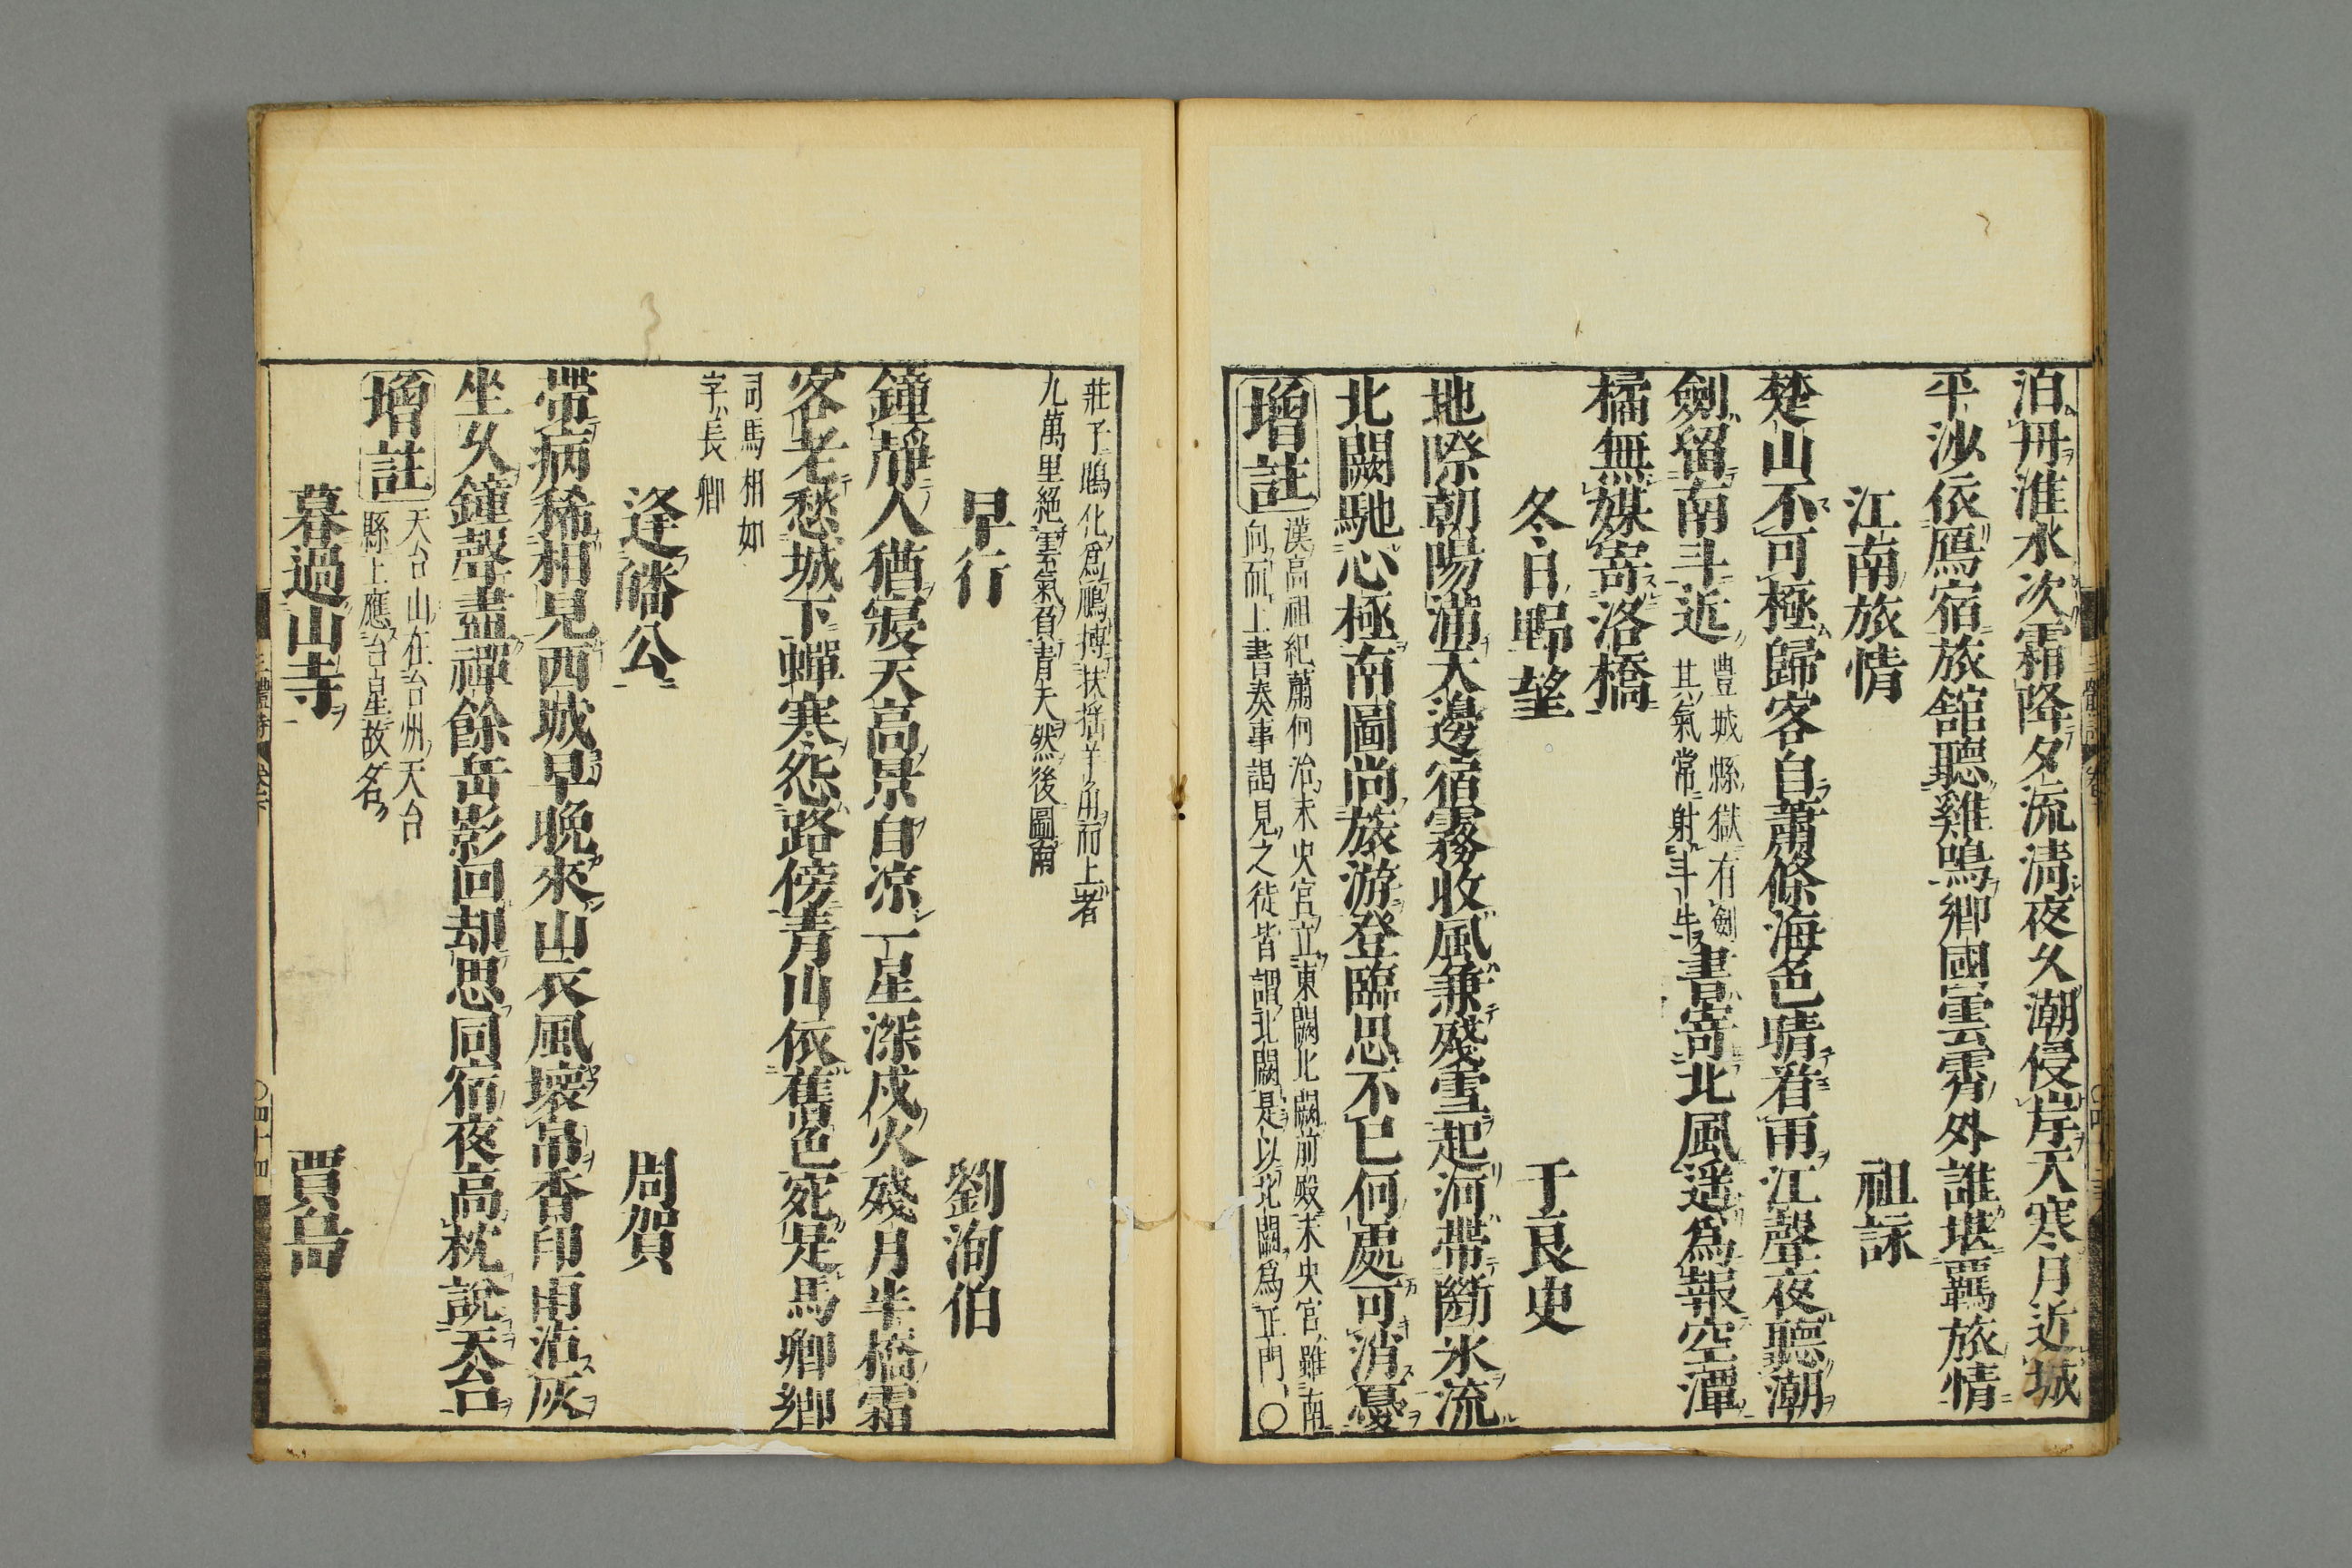 泊舟淮水次霜降夕流清夜久潮侵岸天寒月近城
平沙依鴈宿旅舘聽雞鳴鄉國雲霄外誰堪羈旅情
江南旅情 祖詠
楚山不可極歸客自蕭條海色晴看雨江聲夜聽潮
劍留南斗近 豊城縣獄有劍
其氣常射斗牛 書寄北風遥爲報空潭
橘無媒寄洛橋
冬日野望 于良史
地際朝陽滿天邊宿霧收風兼殘雪起河帶斷氷流
北闕馳心極南圖尚旅游登臨思不已何處可消憂
增註 漢高祖紀蕭何治未央宮立東闕北闕前殿未央宮雖南
向而上書奏事謁見之徒皆詣北闕是以北闕爲正門〇
莊子鵾化爲鵬摶扶揺羊角而上者
九萬里絶雲氣負青天然後圖南
早行 劉洵伯
鐘靜人猶寢天高景自凉一星深戍火殘月半橋霜
客老愁城下蟬寒怨路傍青山依舊色宛是馬卿鄉
司馬相如
字長卿
逢皤公 周賀
帶病稀相見西城早晩來山衣風壞帛香印雨沾灰
坐久鐘聲盡禪餘岳影回却思同宿夜高枕說天台
增註 天台山在台州天台
縣上應台星故名
暮過山寺 賈島
三體詩 卷三 〇四十四